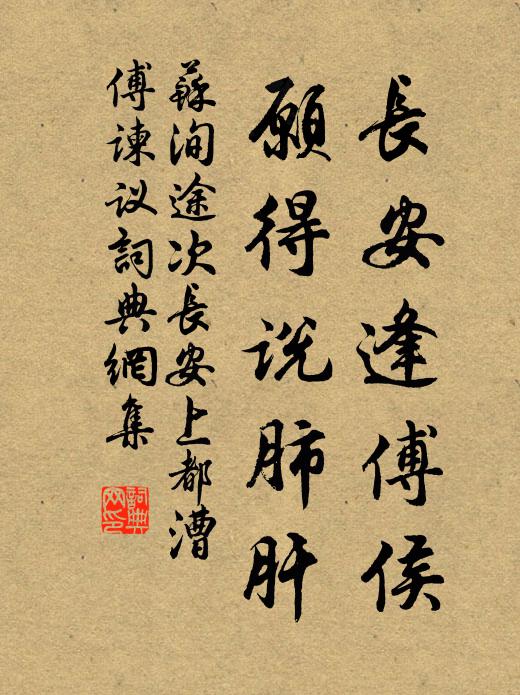 長安逢傅侯
願得说肺肝
蘇洵途次長安上都漕
傅諫议詞典網集
詞典
网印